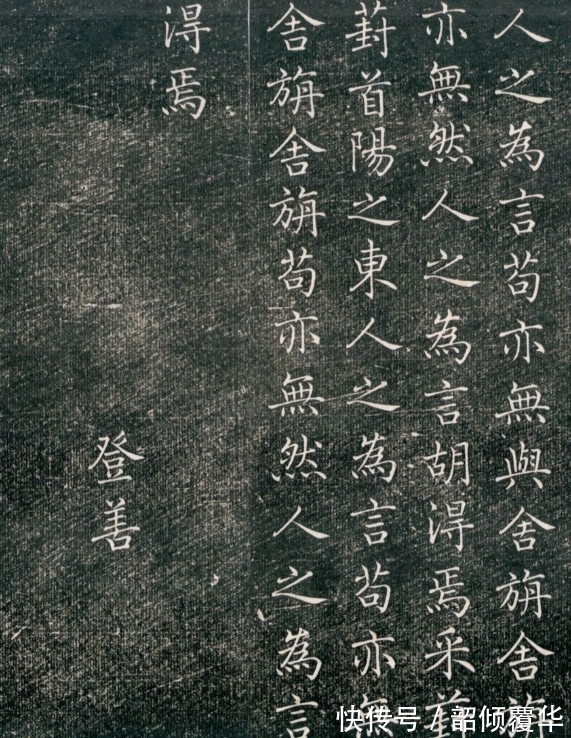 人之為言苟亦無與舍旃舍旃
亦無然人之為言胡淂焉采葑
葑首陽之東人之為言苟亦無
舍旃舍旃苟亦無然人之為言
淂焉
登善
快传号/韶倾覆华